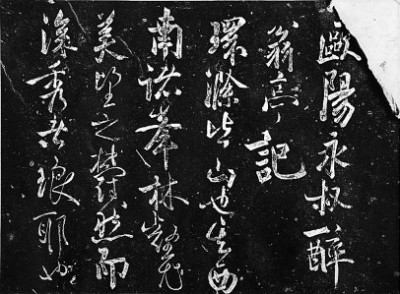 歐陽永叔醉
翁亭記
環滁皆山也其西
南諸峯林壑尤
美望之蔚然而
深秀者琅耶也